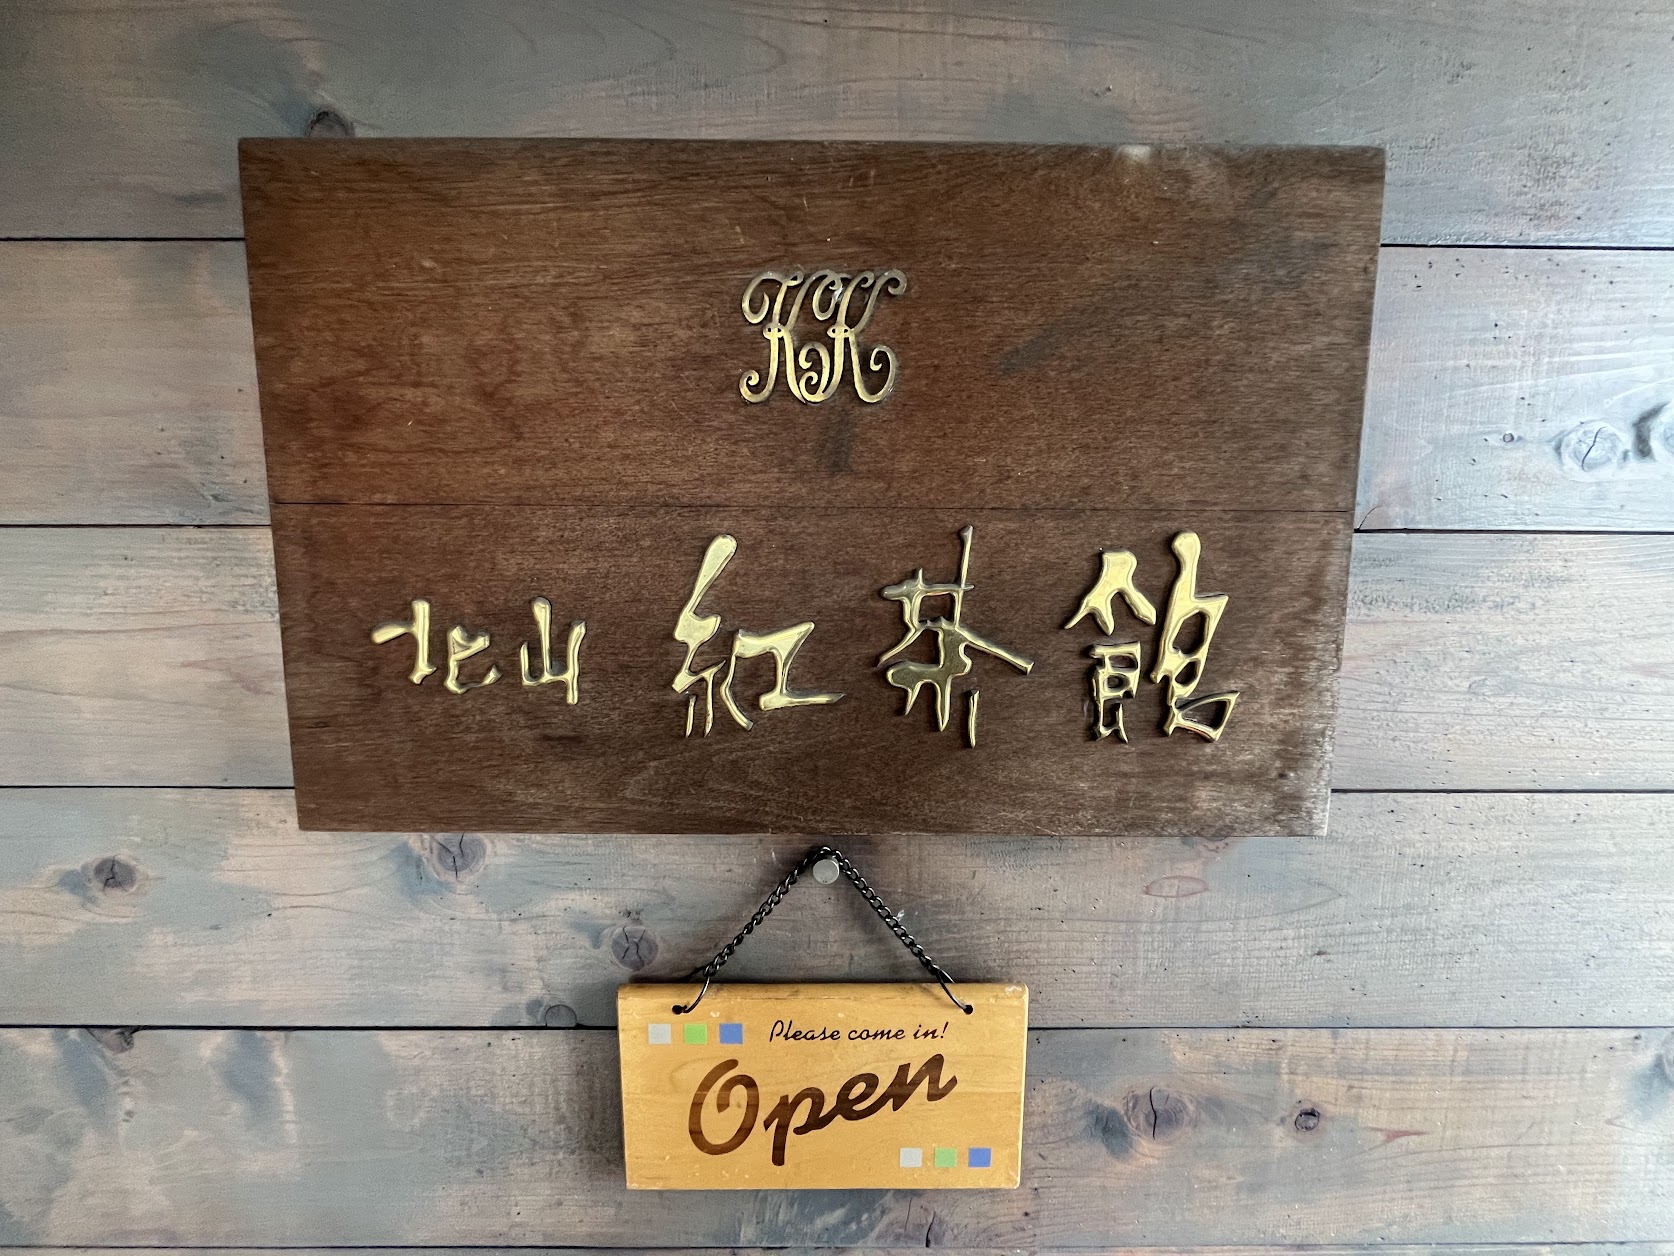 KK
北山 紅茶館
Please come in!
Open